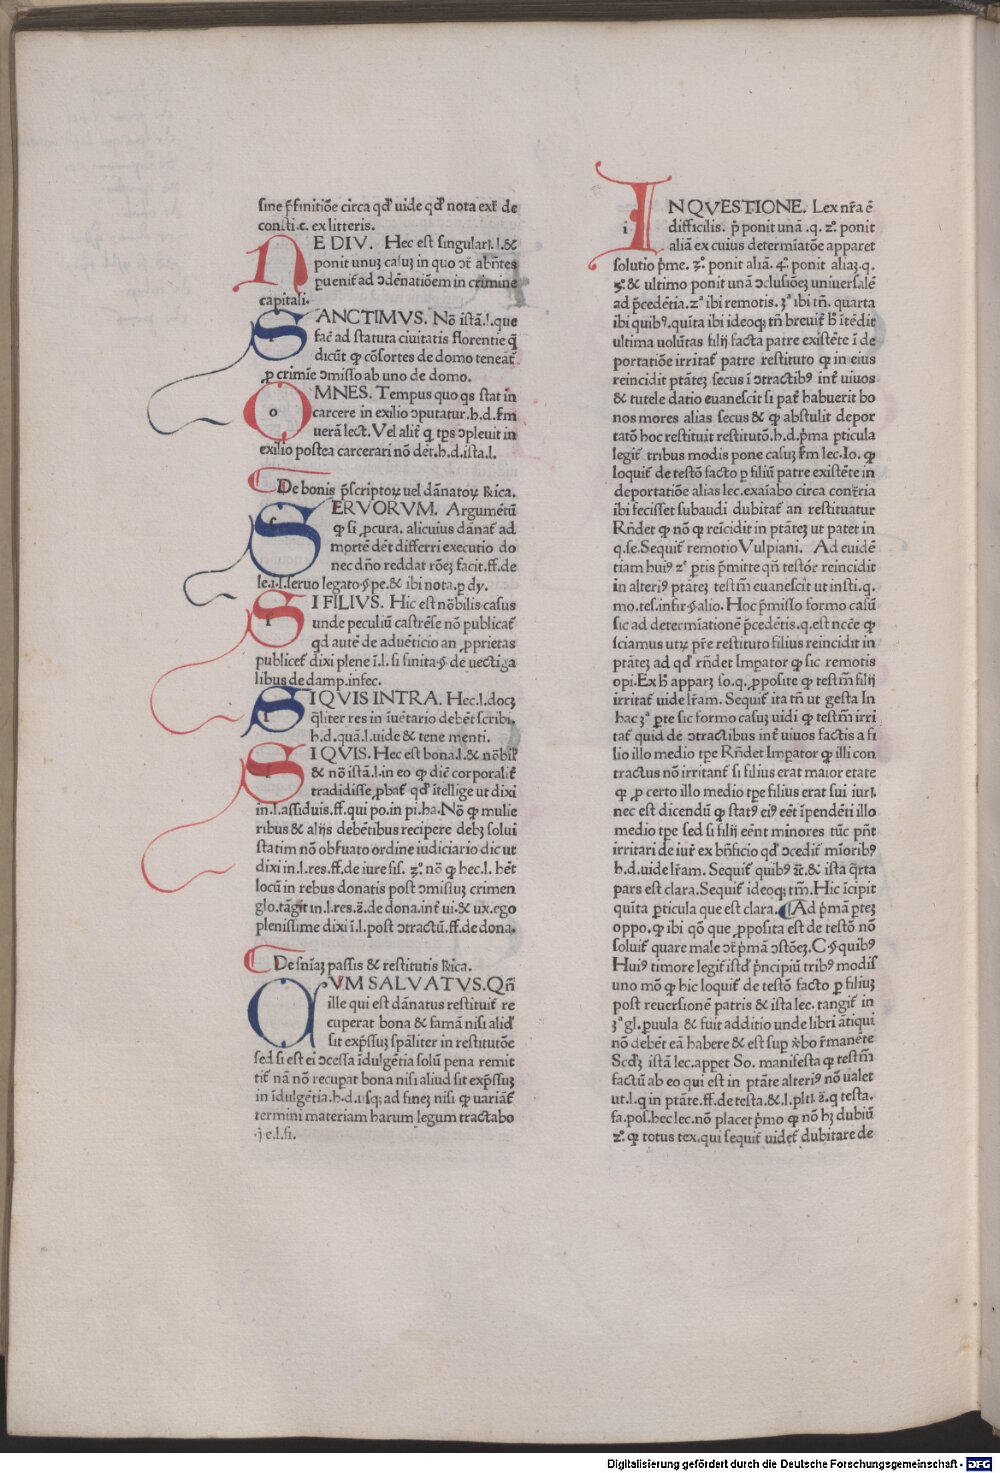 sine p̄finitiōe circa qđ uide qđ nota exꝉ de
consti.c. ex litteris.
NE DIV. Hec est singulari.l.&
ponit unuʒ casuʒ in quo ɔt̄ abn̄tes
ꝑuenit᷑ ad ɔdēnatiōem in crimine
capitali.
SANCTIMVS. Nō istā.l.que
fac̄ ad statuta ciuitatis florentie q̄
dicūt ꝙ cōsortes de domo teneāt᷑
ꝓ crimīe ɔmisso ab uno de domo.
OMNES. Tempus quo qs stat in
carcere in exilio ɔputatur.h.d.f̄m
uerā lect. Vel alit᷑ q tp̄s ɔpleuit in
exilio postea carcerari nō det̄.h.d.ista.l.
De bonis p̄scriptoꝝ uel dānatoꝝ Rica.
SERVORVM. Argumētū
ꝙ si ꝓcura. alicuius dānat᷑ ad
mortē det̄ differri executio do
nec dn̄o reddat rōeʒ facit.ff.de
le.i.l.seruo legato.§ pe.& ibi nota.ꝑ dy.
SI FILIVS. Hic est nōbilis casus
unde peculiū castrēse nō publicat᷑
qd autē de aduēticio an ꝓprietas
publicet᷑ dixi plene ī.l. si finita.§ de uectiga
libus de damp.infec.
SI QVIS INTRA. Hec.l.docʒ
q̄liter res in īuētario debēt scribi.
h.d.quā.l.uide & tene menti.
SI QVIS. Hec est bona.l.& nōbil᷑
& nō istā.l.in eo ꝙ dic̄ corporalit᷑
tradidisse ꝓbat᷑ qđ ītellige ut dixi
in.l.assiduis.ff.qui po.in pi.ha. Nō ꝙ mulie
ribus & alijs debētibus recipere debʒ solui
statim nō obẜuato ordine iudiciario dic ut
dixi in.l.res.ff.de iure fis. ꝫº. nō ꝙ hec.l. hēt
locū in rebus donatis post ɔmissuʒ crimen
glo.tāgit in.l.res.ꝫ̄.de dona.int᷑ ui.& ux.ego
plenissime dixi ī.l.post ɔtractū.ff.de dona.
De sn̄iaʒ passis & restitutis Rica.
CVM SALVATVS. Qn̄
ille qui est dānatus restituit᷑ re
cuperat bona & famā nisi aliđ
sit exp̄ssuʒ sp̄āliter in restitutōe
sed si est ei ɔcessa īdulgētia solū pena remit
tit᷑ nā nō recuꝑat bona nisi aliud sit exp̄ssuʒ
in īdulgētia.h.d.usqʒ ad fineʒ nisi ꝙ uariāt᷑
termini materiam harum legum tractabo
.j e.l.fi.
IN QVESTIONE. Lex nr̄a ē
difficilis. p̄ ponit unā .q. ꝫº. ponit
aliā ex cuius determīatōe apparet
solutio p̄me. 3º. ponit aliā. 4º. ponit aliaʒ.q.
5º & ultimo ponit unā ɔclusiōeʒ uniuersalē
ad p̄cedētia. 2ª ibi remotis. 3ª ibi tn̄. quarta
ibi quibꝰ. quīta ibi ideoqʒ tn̄ breuit᷑ ħ ītēdit
ultima uolūtas filij facta patre existēte ī de
portatiōe irritat᷑ patre restituto ꝙ in eius
reincidit ptāteʒ secus ī ɔtractibꝰ int᷑ uiuos
& tutele datio euanescit si pat᷑ habuerit bo
nos mores alias secus & ꝙ abstulit depor
tatō hoc restituit restitutō.h.d.p̄ma ꝑticula
legit᷑ tribus modis pone casuʒ f̄m lec. Io. ꝙ
loquit᷑ de testō facto ꝑ filiū patre existēte in
deportatiōe alias lec.exaīabo circa contr̄ia
ibi fecisset subaudi dubitat᷑ an restituatur
Rn̄det ꝙ nō ꝙ reīcidit in ptāteʒ ut patet in
q.se. Sequit᷑ remotio Vulpiani. Ad euidē
tiam huiꝰ 2º ꝑtis p̄mitte qn̄ testōr reincidit
in alteriꝰ ptāteʒ testm̄ euanescit ut insti.q.
mo.tes.infir.§ alio. Hoc p̄misso formo casū
sic ad determīationē p̄cedētis.q.est ncēe ꝙ
sciamus utꝝ pr̄e restituto filius reincidit in
ptāteʒ ad qđ rn̄det Imꝑator ꝙ sic remotis
opi. Ex ħ apparʒ so.q. ꝓposite ꝙ testm̄ filij
irritat᷑ uide lr̄am. Sequit᷑ ita tn̄ ut gesta In
hac 3ª ꝑte sic formo casuʒ uidi ꝙ testm̄ irri
tat᷑ quid de ɔtractibus int᷑ uiuos factis a fi
lio illo medio tp̄e Rn̄det Imꝑator ꝙ illi con
tractus nō irritant᷑ si filius erat maior etate
ꝙ ꝓ certo illo medio tp̄e filius erat sui iuri.
nec est dicendū ꝙ statꝰ eiꝰ eēt īpendēti illo
medio tp̄e sed si filij eēnt minores tūc pn̄t
irritari de iur᷑ ex bn̄ficio qđ ɔcedit᷑ mīoribꝰ
h.d.uide lr̄am. Sequit᷑ quibꝰ ꝫ̄t.& ista q̄rta
pars est clara. Sequit᷑ ideoqʒ tm̄. Hic īcipit
quīta ꝑticula que est clara. Ad p̄mā ꝑteʒ
oppo. ꝙ ibi qō que ꝓposita est de testō nō
soluit᷑ quare male ɔt̄ p̄mā ɔstōeʒ. C § quibꝰ
Huiꝰ timore legit᷑ istđ p̄ncipiū tribꝰ modis
uno mō ꝙ hic loquit᷑ de testō facto ꝑ filiuʒ
post reuersionē patris & ista lec. tangit᷑ in
3ª gl. ꝑuula & fuit additio unde libri ātiqui
nō debēt eā habere & est suꝑ x̄bo r̄manēte
Scđʒ istā lec.appet So. manifesta ꝙ testm̄
factū ab eo qui est in ptāte alteriꝰ nō ualet
ut.l.q in ptāte.ff.de testa.&.l.pltī.ꝫ̄.q testa.
fa.pos.hec lec.nō placet p̄mo ꝙ nō hʒ dubiū
2º. ꝙ totus tex.qui sequit᷑ uidet᷑ dubitare de
Digitalisierung gefördert durch die Deutsche Forschungsgemeinschaft - DFG